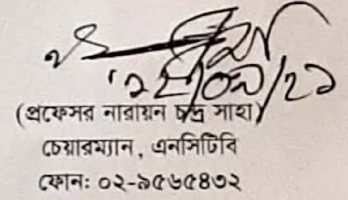 (প্রফেসর নারায়ন চন্দ্র সাহা)
চেয়ারম্যান, এনসিটিবি
ফোনঃ ০২-৯৫৬৫৪৩২